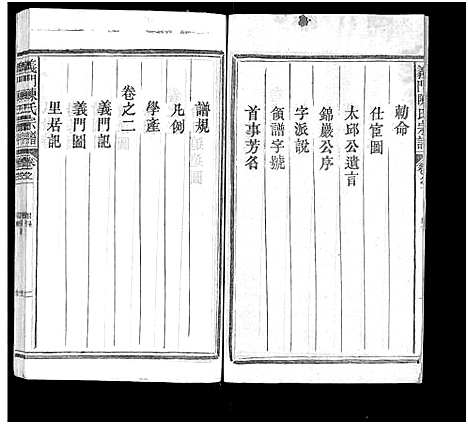 義門陳氏宗譜
勅命
仕宦圖
太邱公遺言
錦嚴公序
字派說
領譜字號
首事芳名
譜規
凡例
學產
卷之二
義門記
義門圖
里居記
義門陳氏宗譜